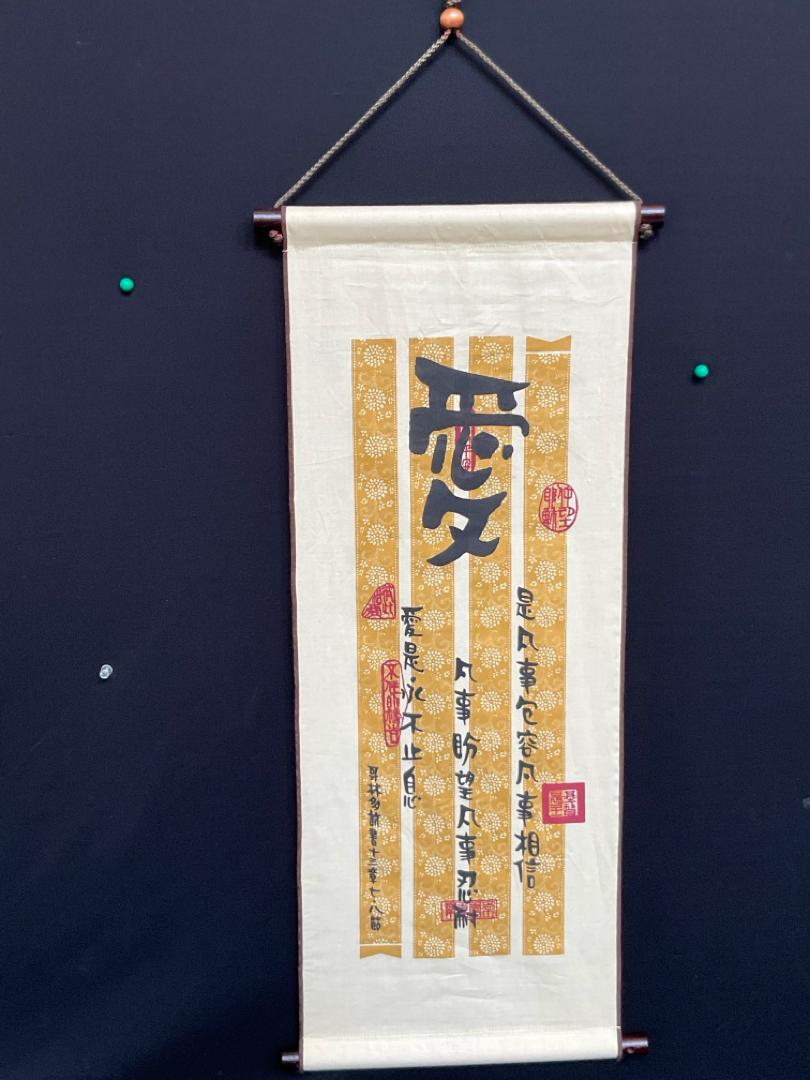 愛
是凡事包容凡事相信
凡事盼望凡事忍耐
愛是永不止息
哥林多前書十三章七、八節